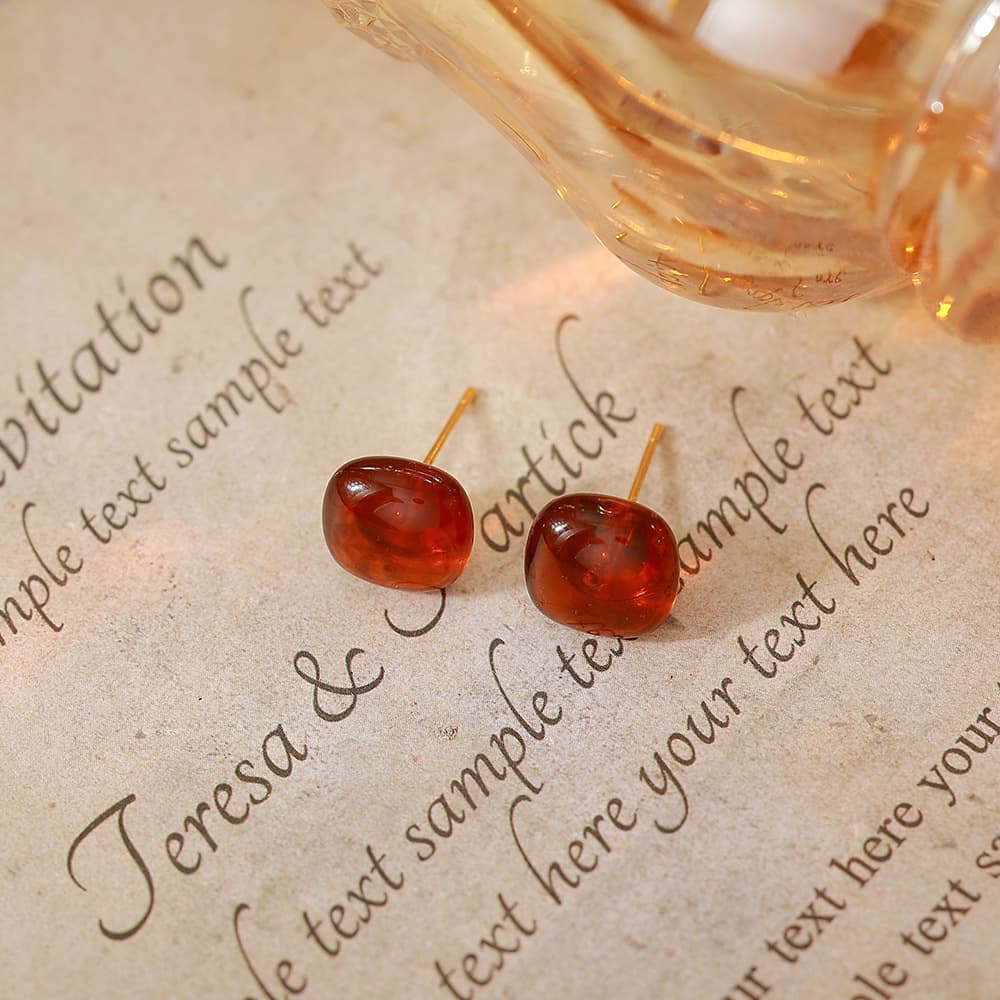 vitation
mple text sample text sample text
Teresa & artick
le text sample text sample te ample text
text here your text here
ur text here your
le text sa